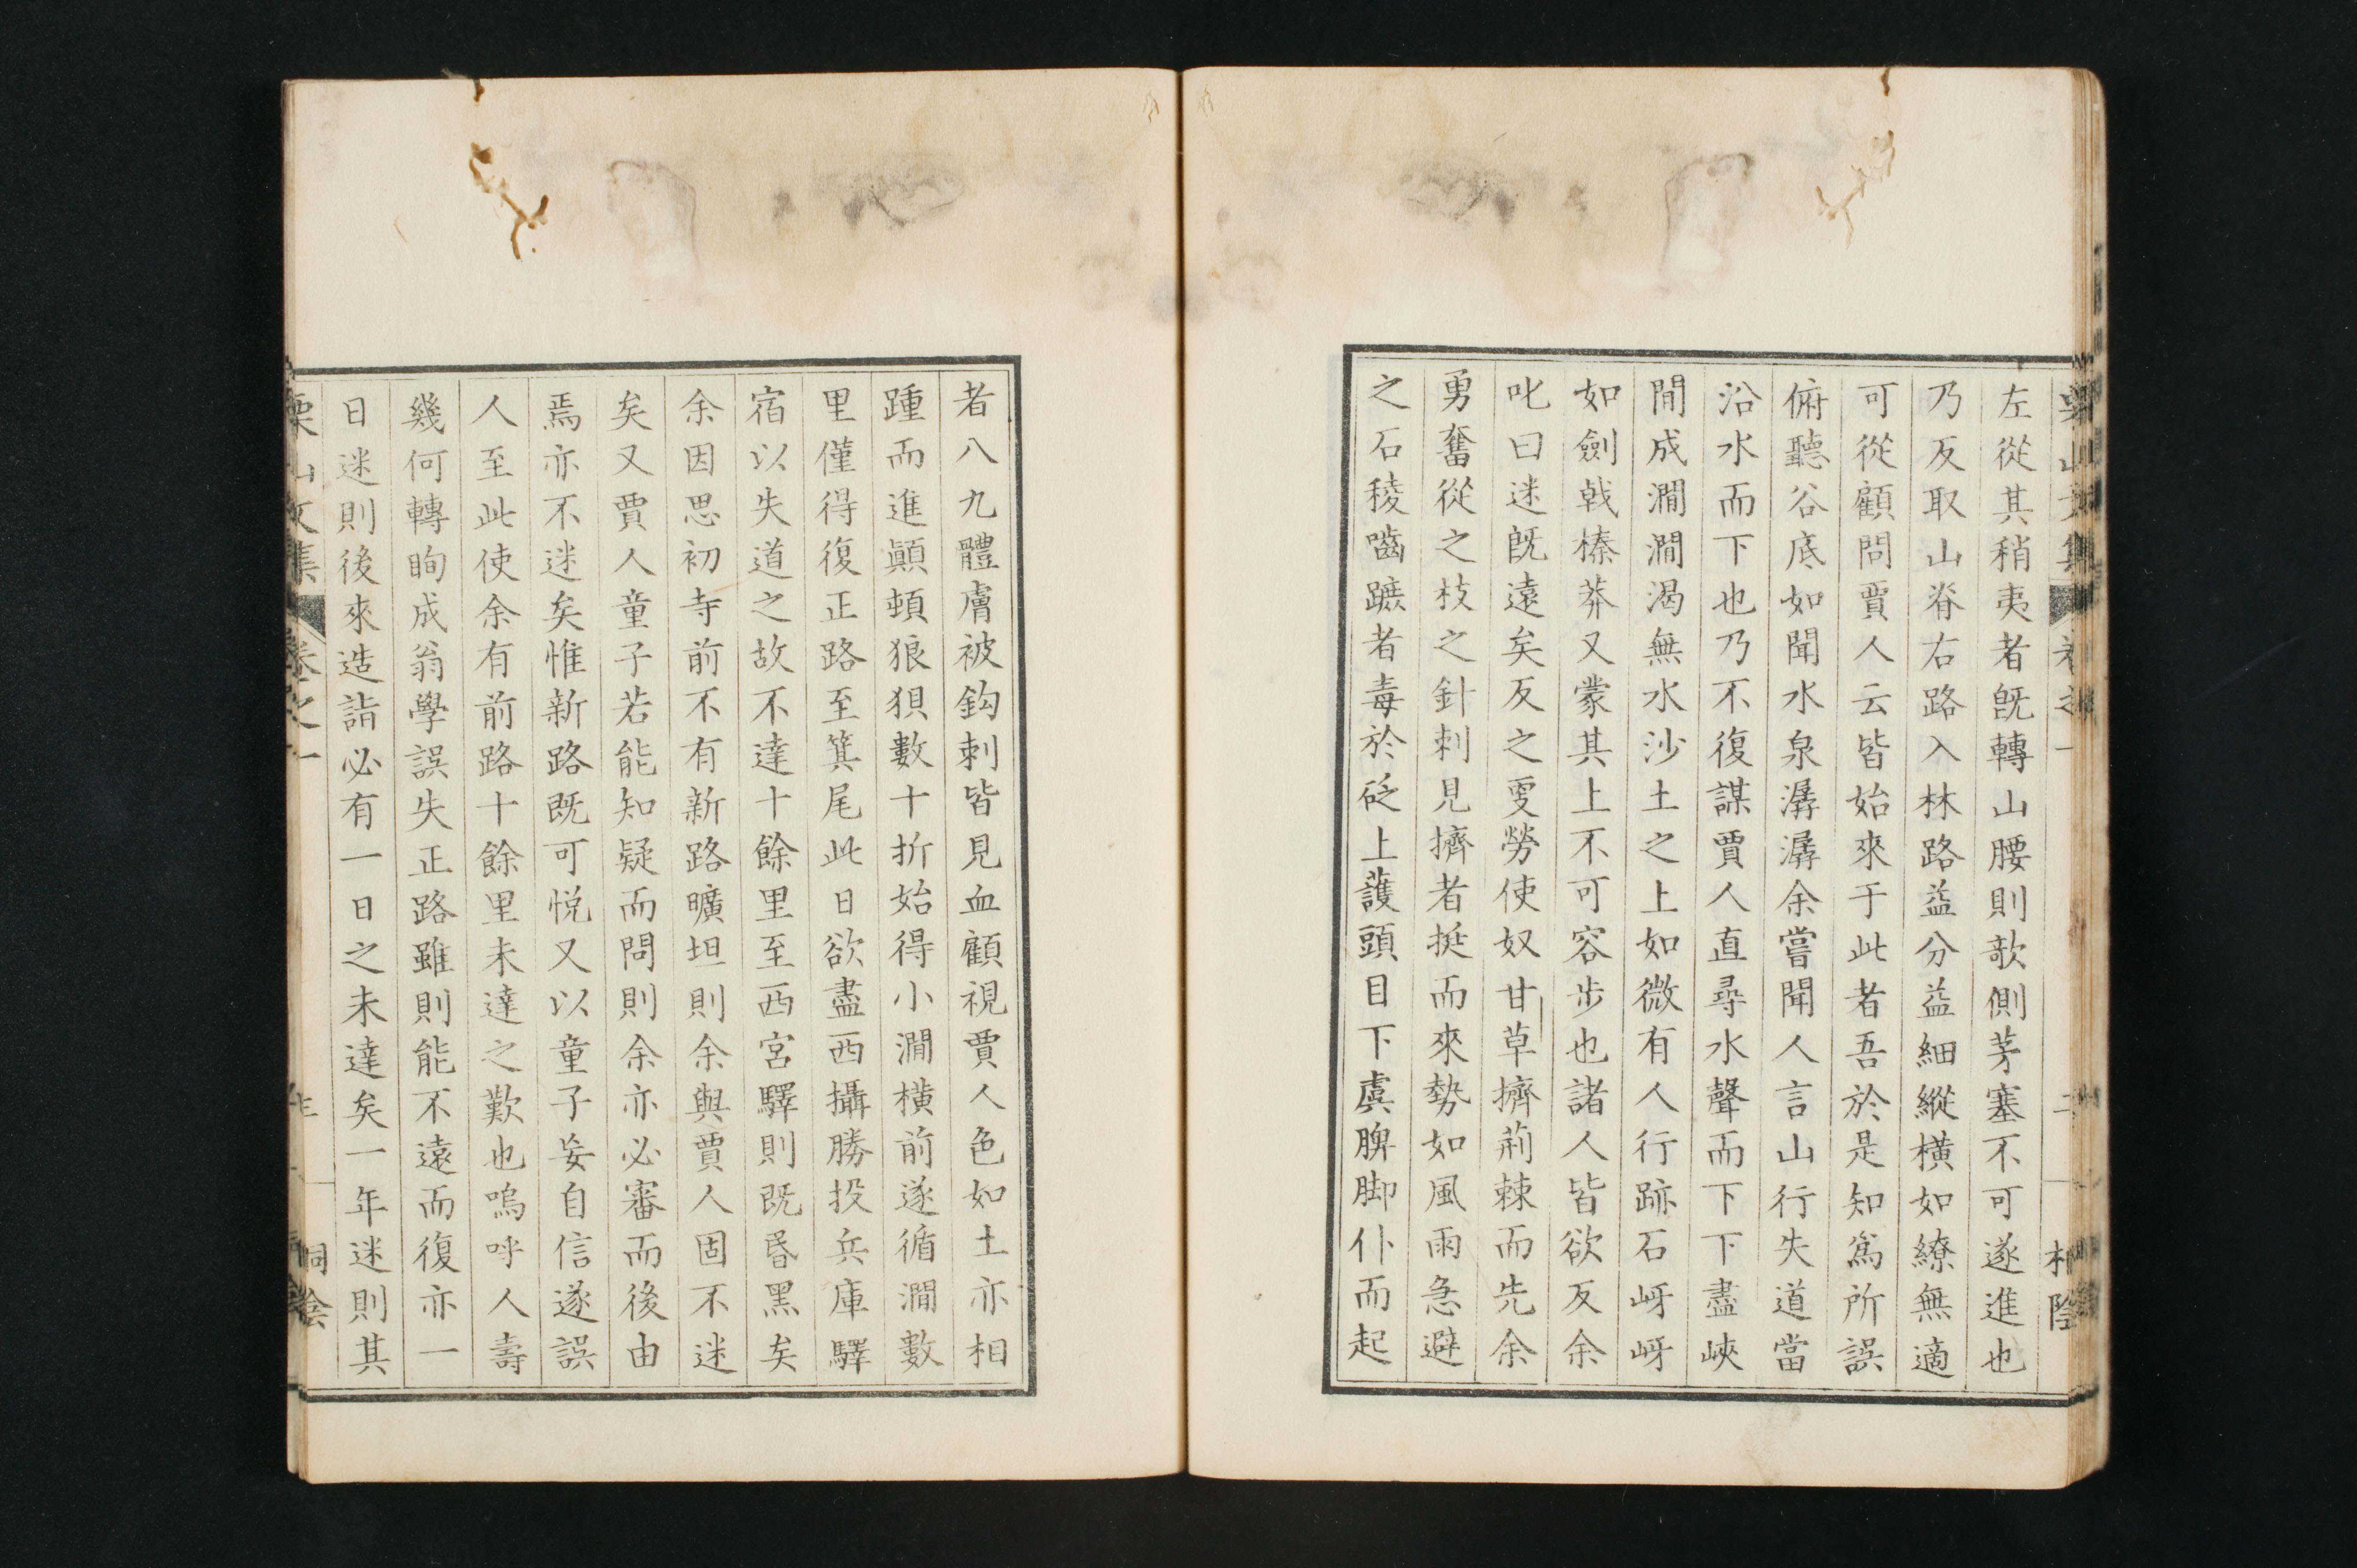 左從其稍夷者既轉山腰則欹側茅塞不可遂進也
乃反取山脊右路入林路益分益細縱橫如繚無適
可從顧問賈人云皆始來于此者吾於是知爲所誤
俯聽谷底如聞水泉潺潺余嘗聞人言山行失道當
沿水而下也乃不復謀賈人直尋水聲而下下盡峽
間成澗澗渴無水沙土之上如微有人行跡石岈岈
如劍戟榛莽又蒙其上不可容步也諸人皆欲反余
叱曰迷既遠矣反之更勞使奴甘草擠荊棘而先余
勇奮從之枝之針刺見擠者挺而來勢如風雨急避
之石稜嚙蹠者毒於砭上護頭目下虞脾脚仆而起
者八九體膚被鈎刺皆見血顧視賈人色如土亦相
踵而進顚頓狼狽數十折始得小澗橫前遂循澗數
里僅得復正路至箕尾此日欲盡西攝勝投兵庫驛
宿以失道之故不達十餘里至西宮驛則既昏黑矣
余因思初寺前不有新路曠坦則余與賈人固不迷
矣又賈人童子若能知疑而問則余亦必審而後由
焉亦不迷矣惟新路既可悅又以童子妄自信遂誤
人至此使余有前路十餘里未達之歎也嗚呼人壽
幾何轉眴成翁學誤失正路雖則能不遠而復亦一
日迷則後來造詣必有一日之未達矣一年迷則其
栗山文集
卷之一